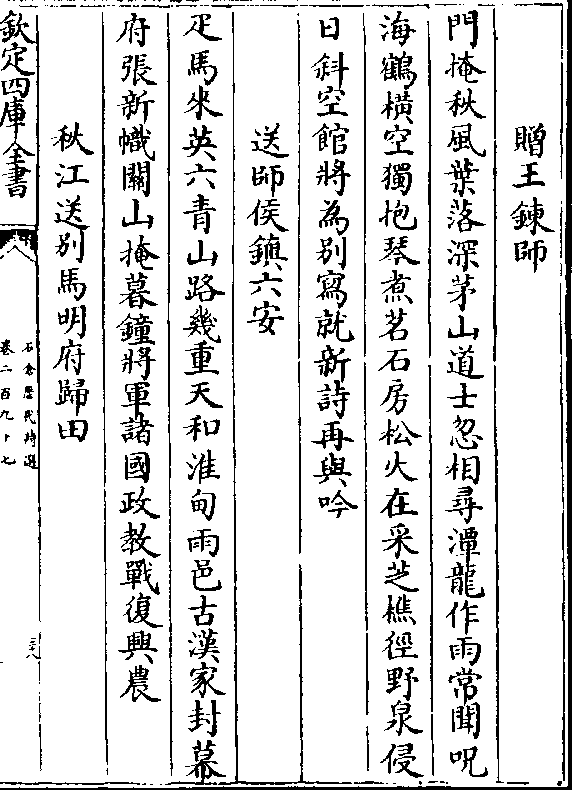 贈王鍊師
門掩秋風葉落深茅山道士忽相尋潭龍作雨常聞呪
海鶴橫空獨抱琴煮茗石房松火在采芝樵徑野泉侵
日斜空館將為別寫就新詩再與吟
送師侯鎮六安
疋馬來英六青山路幾重天和淮甸雨邑古漢家封幕
府張新幟關山掩暮鐘將軍諳國政教戰復興農
秋江送別馬明府歸田
欽定四庫全書
石倉歷代詩選
卷二百九十七